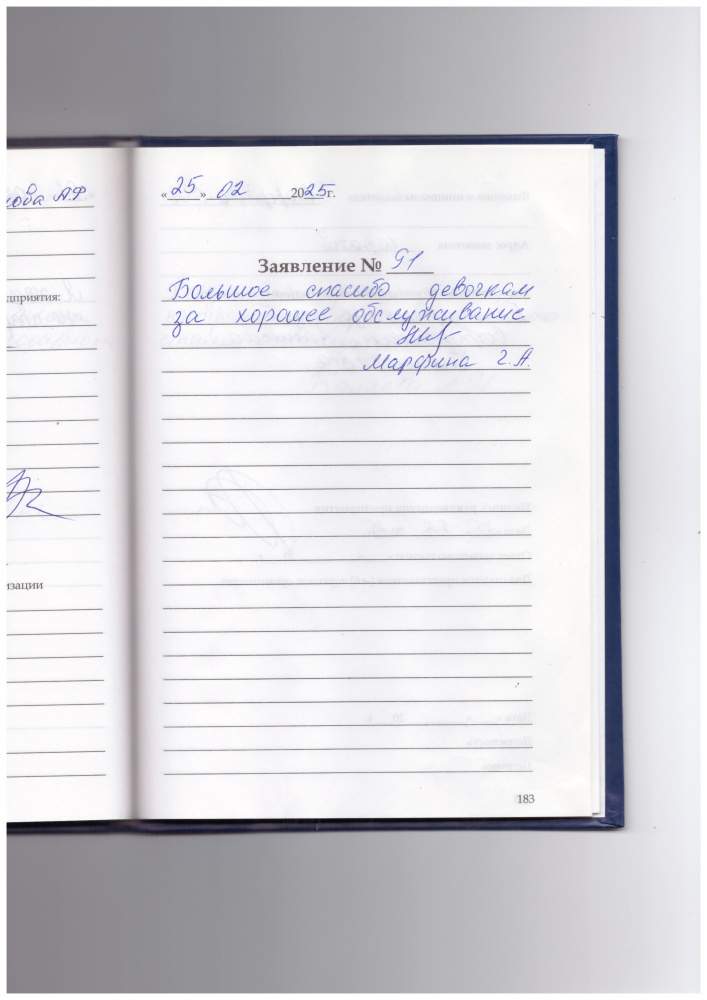 нова А.Ф
дприятия:
изации
«25» 02 2025г.
Заявление № 91
Большое спасибо девочкам
за хорошее обслуживание
Марфина Г.А.
183